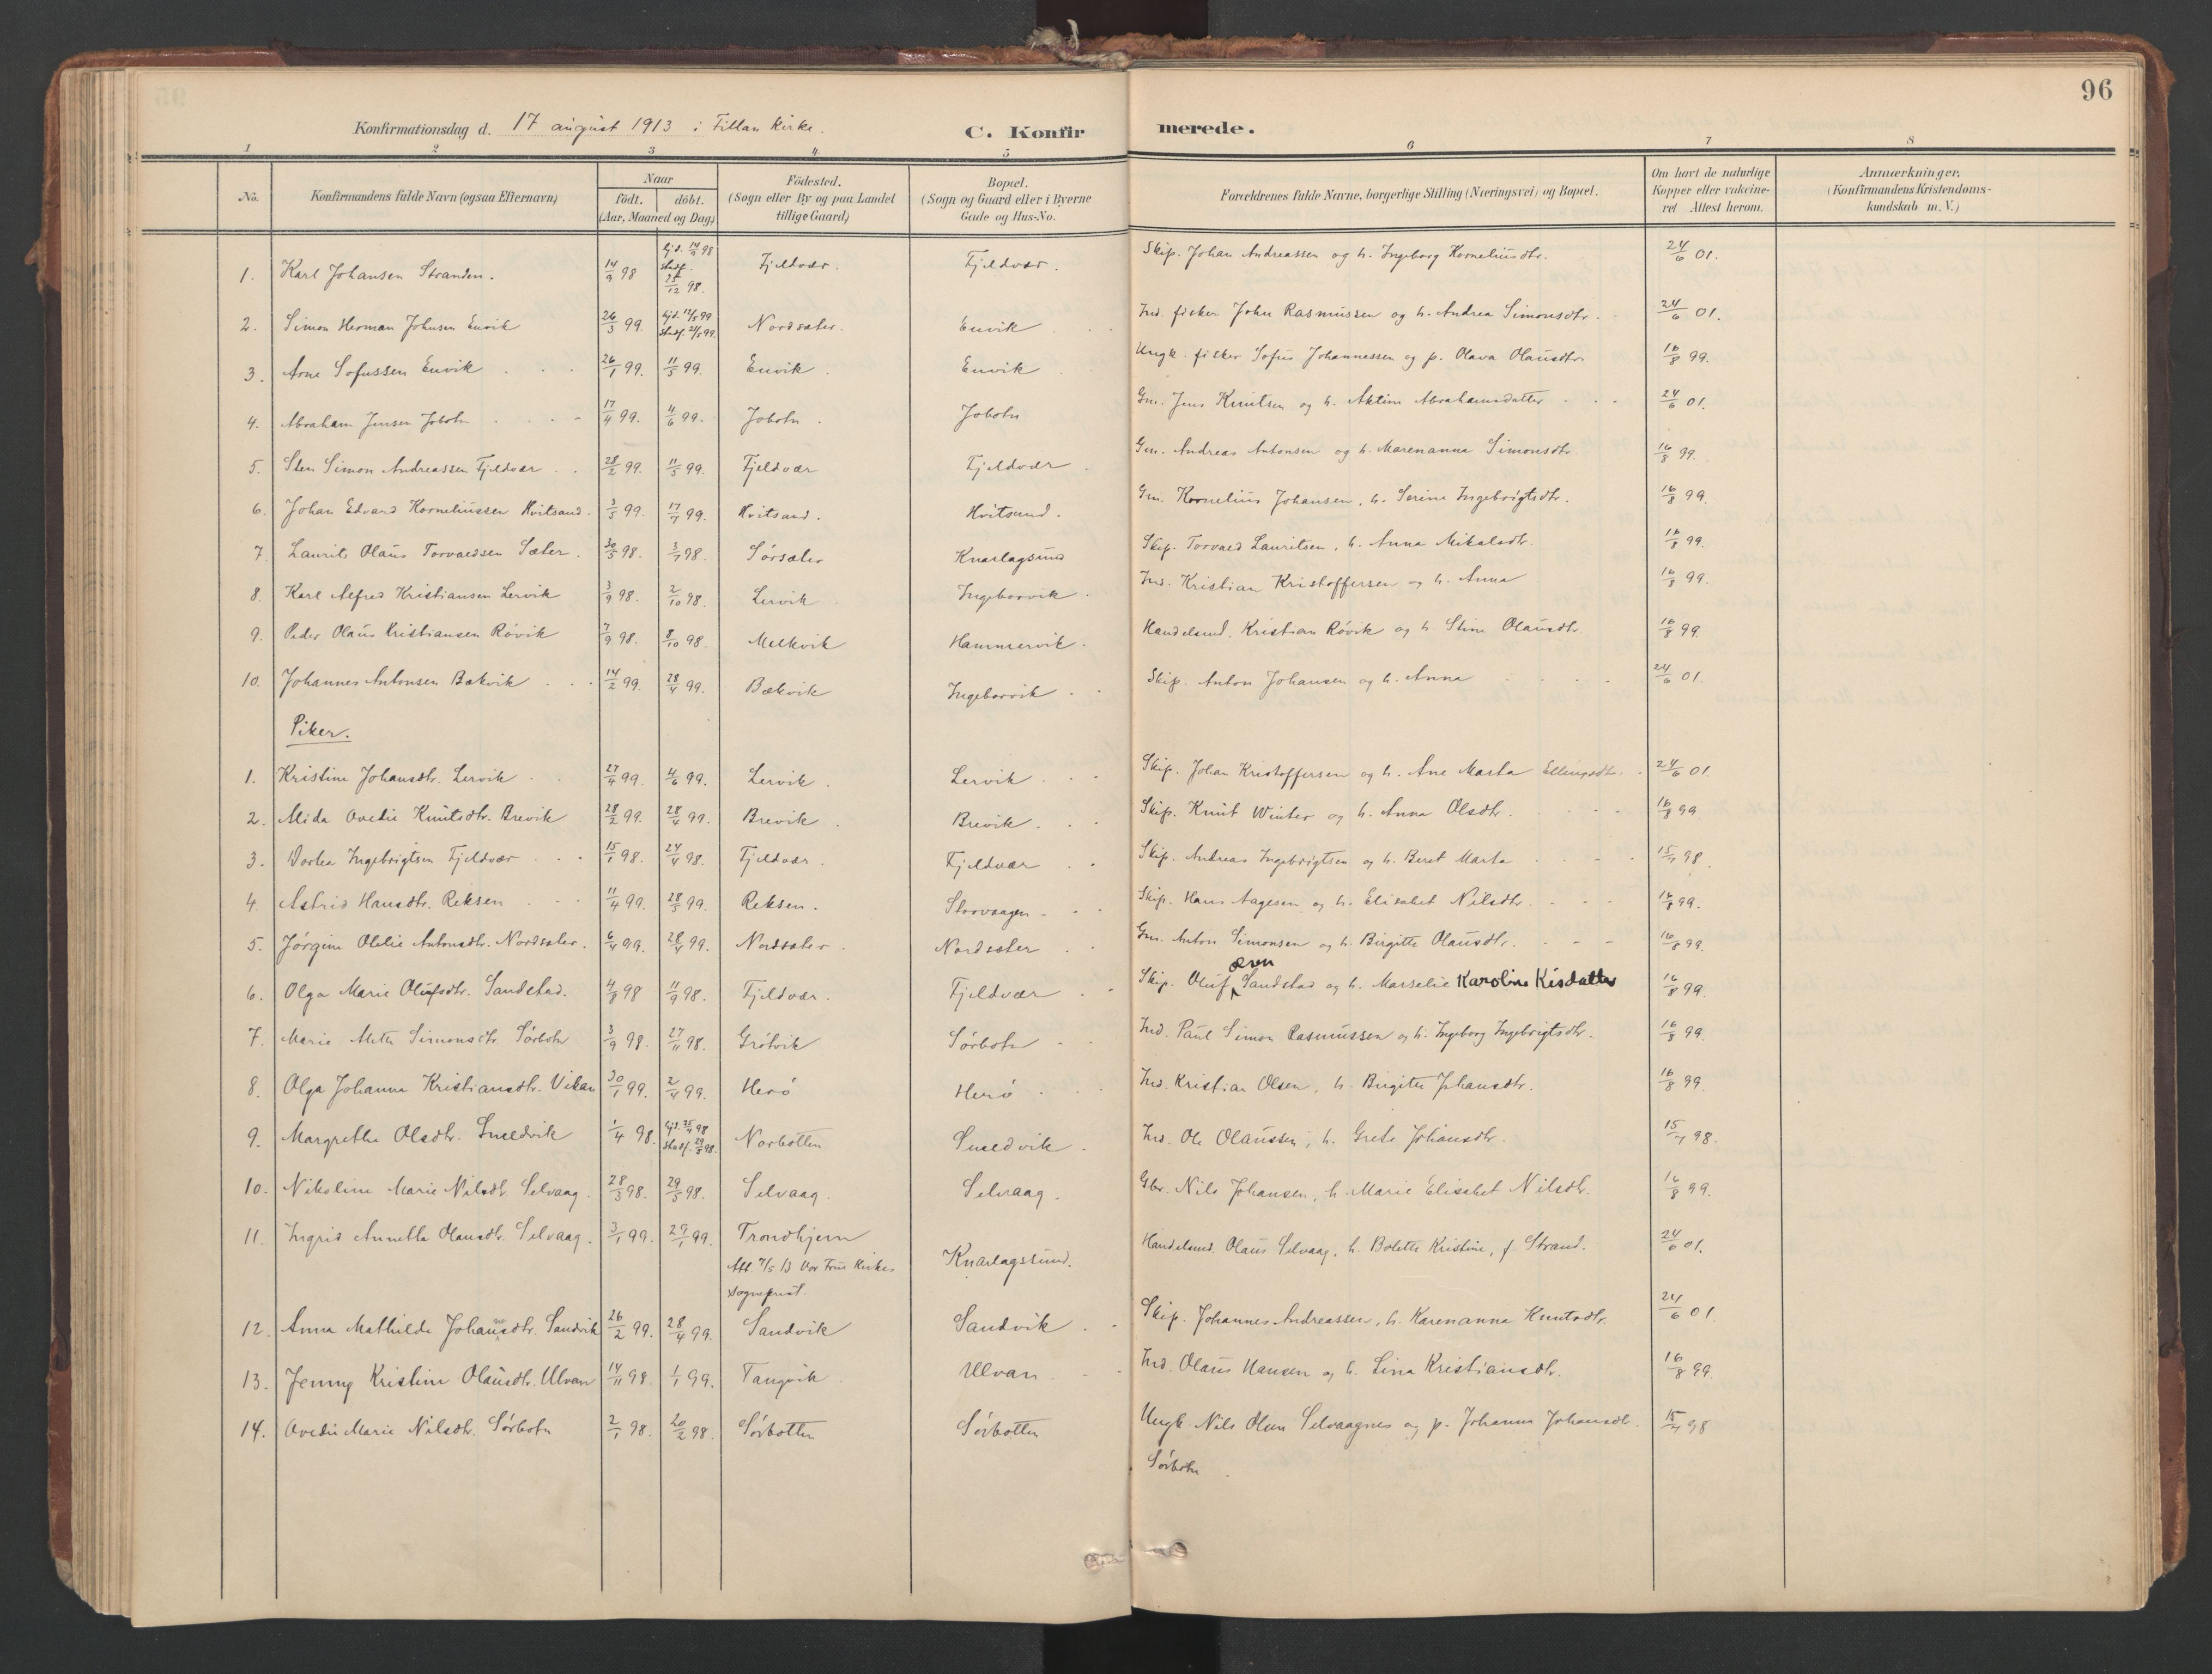 96
Konfirmationsdag d. 17 august 1913 i Fillan Kirke.
C. Konfirmerede.
1 2 3 4 5 6 7 8
No. Konfirmandens fulde Navn (ogsaa Efternavn) Naar födt. döbt. (Aar, Maaned og Dag) Födested. (Sogn eller By og paa Landet tillige Gaard) Bopæl. (Sogn og Gaard eller i Byerne Gade og Hus-No. Forældrenes fulde Navne, borgerlige Stilling (Næringsvei) og Bopæl. Om havt de naturlige Kopper eller vakcineret Attest herom. Anmærkninger. (Konfirmandens Kristendomskundskab m. V.)
1. Karl Johansen Stranden. 14/9 98 hjd. 14/9 98 stadf. 25/12 98. Fjeldvær. Fjeldvær. Skip. Johan Andreassen og h. Ingeborg Korneliusdtr. 24/6 01.
2. Simon Herman Johnsen Envik 26/3 99. hjd. stadf. 21/5 99. Nordsæter. Envik Ind. fisker John Rasmussen og h. Andrea Simonsdtr. 24/6 01.
3. Arne Sofussen Envik 26/1 99. 11/5 99. Envik Envik Ungk. fisker Sofus Johannessen og p. Olava Olausdtr. 16/8 99.
4. Abraham Jensen Jobotn 17/4 99. 4/6 99. Jobotn Jobotn Gm. Jens Knutsen og h. Aktine Abrahamsdatter 24/6 01.
5. Sten Simon Andreassen Fjeldvær 28/2 99. 11/5 99. Fjeldvær Fjeldvær Gm. Andreas Antonsen og h. Marenanna Simonsdtr. 16/8 99.
6. Johan Edvard Korneliussen Hvitsand. 3/5 99. 17/7 99. Hvitsand. Hvitsand. Gm. Kornelius Johansen, h. Serine Ingebrigtsdtr. 16/8 99.
7. Laurits Olaus Torvaldsen Sæter. 30/5 98. 3/7 98. Sörsæter Knarlagsund Skip. Torvald Lauritsen, h. Anna Mikalsdtr. 16/8 99.
8. Karl Alfred Kristiansen Lervik 3/9 98. 2/10 98. Lervik Ingeborvik Ind. Kristian Kristoffersen og h. Anna 16/8 99.
9. Peder Olaus Kristiansen Rövik 7/9 98. 8/10 98. Melkvik Hammervik. Handelsmd. Kristian Rövik og h. Stine Olausdtr. 16/8 99.
10. Johannes Antonsen Bækvik 14/2 99. 28/4 99. Bækvik Ingeborvik Skip. Anton Johansen og h. Anna 24/6 01.
Piker.
1. Kristine Johansdtr. Lervik 27/4 99. 4/6 99. Lervik Lervik Skip. Johan Kristoffersen og h. Ane Marta Ellingsdtr. 24/6 01.
2. Alida Ovedie Knutsdtr. Brevik 28/2 99. 28/4 99. Brevik Brevik Skip. Knut Winter og h. Anna Olsdtr. 16/8 99.
3. Dortea Ingebrigtsen Fjeldvær 15/1 98. 24/4 98. Fjeldvær. Fjeldvær Skip. Andreas Ingebrigtsen og h. Beret Marta 15/7 98.
4. Astrid Hansdtr. Reksen 11/4 99. 28/5 99. Reksen. Storvaagen Skip. Hans Aagesen og h. Elisabet Nilsdtr. 16/8 99.
5. Jörgine Oldie Antonsdtr. Nordsæter. 6/4 99. 28/4 99. Nordsæter Nordsæter Gm. Anton Simonsen og h. Birgitte Olausdtr. 16/8 99.
6. Olga Marie Olufsdtr. Sandstad. 4/8 98 11/9 98. Fjeldvær. Fjeldvær Skip. Oluf Sandstad og h. Marselie Karoline 16/8 99.
7. Marie Mette Simonsdtr. Sörbotn 3/9 98. 27/11 98. Grötvik Sörbotn Ind. Paul Simon Rasmussen og h. Ingeborg Ingebrigtsdtr. 16/8 99.
8. Olga Johanna Kristiansdtr. Vikan 30/1 99. 2/4 99. Herö Herö Ind. Kristian Olsen, h. Birgitte Johansdtr. 16/8 99.
9. Margrethe Olsdtr. Smedvik 1/4 98. hjd. 25/4 98 stadf. 29/5 98. Norbotten Smedvik. Ind. Ole Olaussen, h. Grete Johansdtr. 15/7 98.
10. Nikoline Marie Nilsdtr. Selvaag. 28/3 98. 29/5 98. Selvaag. Selvaag. Gbr. Nils Johansen, h. Marie Elisabet Nilsdtr. 16/8 99.
11. Ingrid Annetta Olausdtr. Selvaag. 3/1 99. 29/1 99. Trondhjem Knarlagssund. Handelsmd. Olaus Selvaag, h. Bolette Kristine, f. Strand. 24/6 01.
Att. 7/5 13 Vor Frue Kirkes
sogneprest.
12. Anna Mathilde Johansdtr. Sandvik 26/2 99. 28/4 99. Sandvik Sandvik Skip. Johannes Andreassen, h. Karenanna Knutsdtr. 24/6 01.
13. Jenny Kristine Olausdtr. Ulvan 14/11 98. 1/1 99. Tangvik Ulvan Ind. Olaus Hansen og h. Lina Kristiansdtr. 16/8 99.
14. Ovedie Marie Nilsdtr. Sörbotn 2/1 98. 20/2 98. Sörbotten Sörbotten Ungk. Nils Olsen Selvaagnes og p. Johanna Johansdtr. 15/7 98
Sörbotn